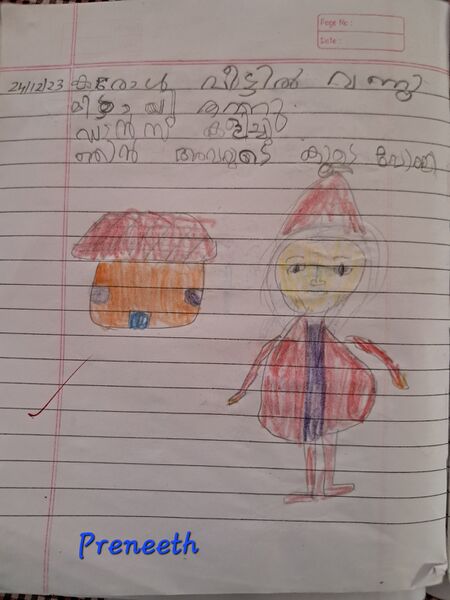 Page No :
Date :
24/12/23 കരോൾ വീട്ടിൽ വന്നു
മിഠായി തന്നു
ഡാൻസ് കളിച്ചു
ഞാൻ അവരുടെ കൂടെ പോയി
Preneeth